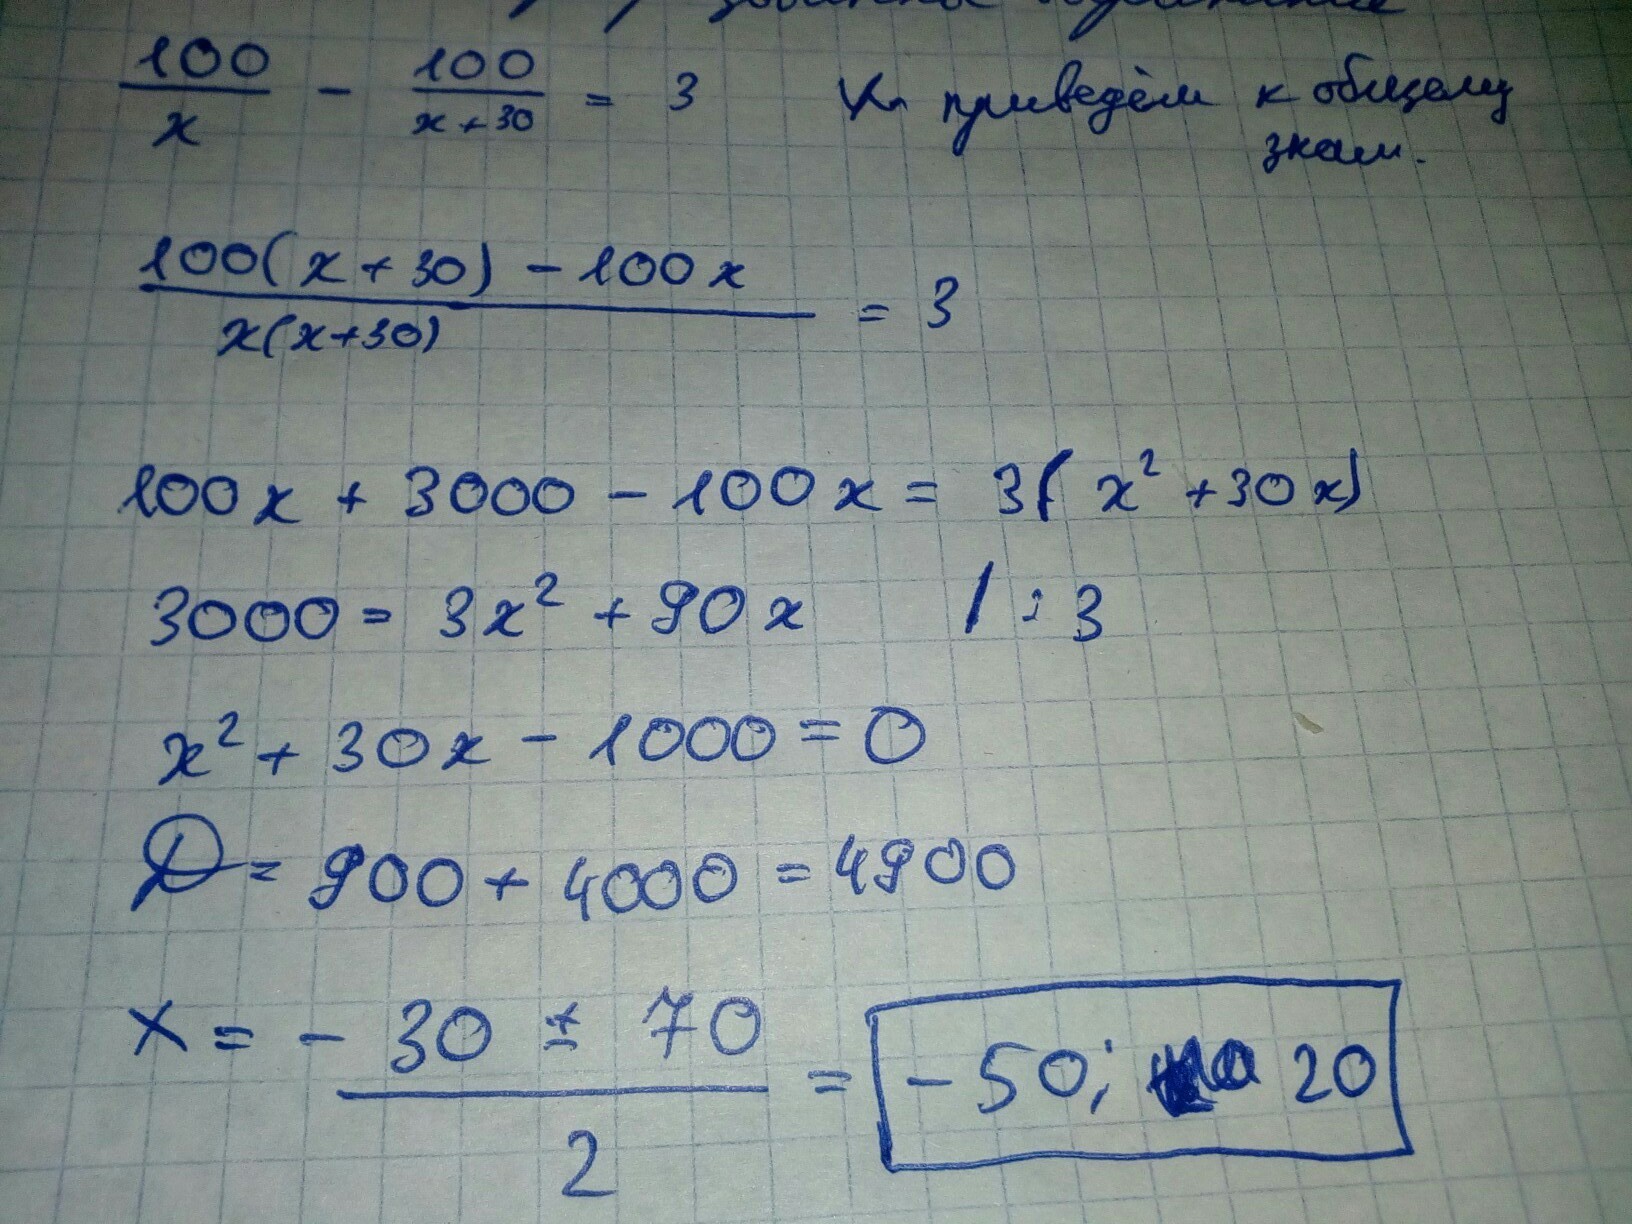 100/x - 100/(x+30) = 3 приведём к общему
знам.
(100(x+30) - 100x)/(x(x+30)) = 3
100x + 3000 - 100x = 3(x² + 30x)
3000 = 3x² + 90x / : 3
x² + 30x - 1000 = 0
D = 900 + 4000 = 4900
x = (-30 ± 70)/2 = -50; 20